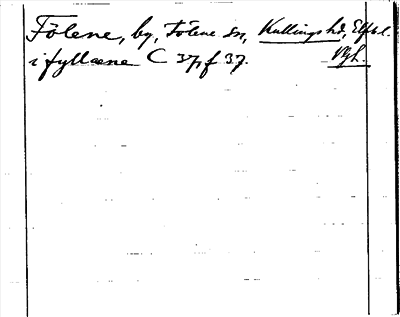 Fölene, by, Fölene sn, Kullings hd, Elfsb l.
i fyllæne C 37, f 37. Vgl.